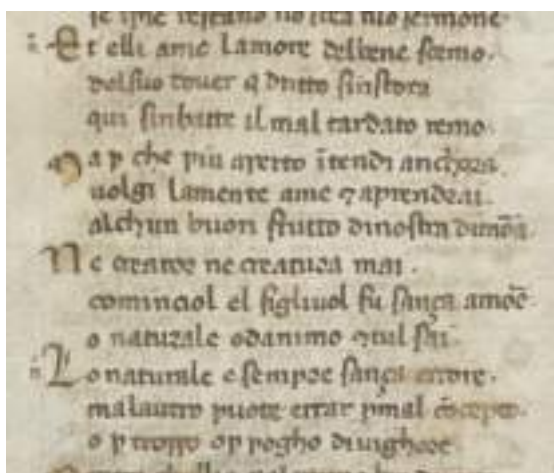 se i pie restano no stea nio sermone
Et elli ame lamore delbene scemo.
delsuo dover q dritto sinstora
qui sinbatte il mal tardato remo.
Ma p che piu aperto ītendi anchora.
volgi lamente ame ⁊ aprenderai.
alchun buon frutto dinostra dimōa.
Ne creatore ne creatura mai.
cominciol el figliuol fu sança amōe
o naturale odanimo ⁊tul sai.
Lo naturale e sempre sança errore.
malautro puote errar pmal
o p troppo op pogho divighore